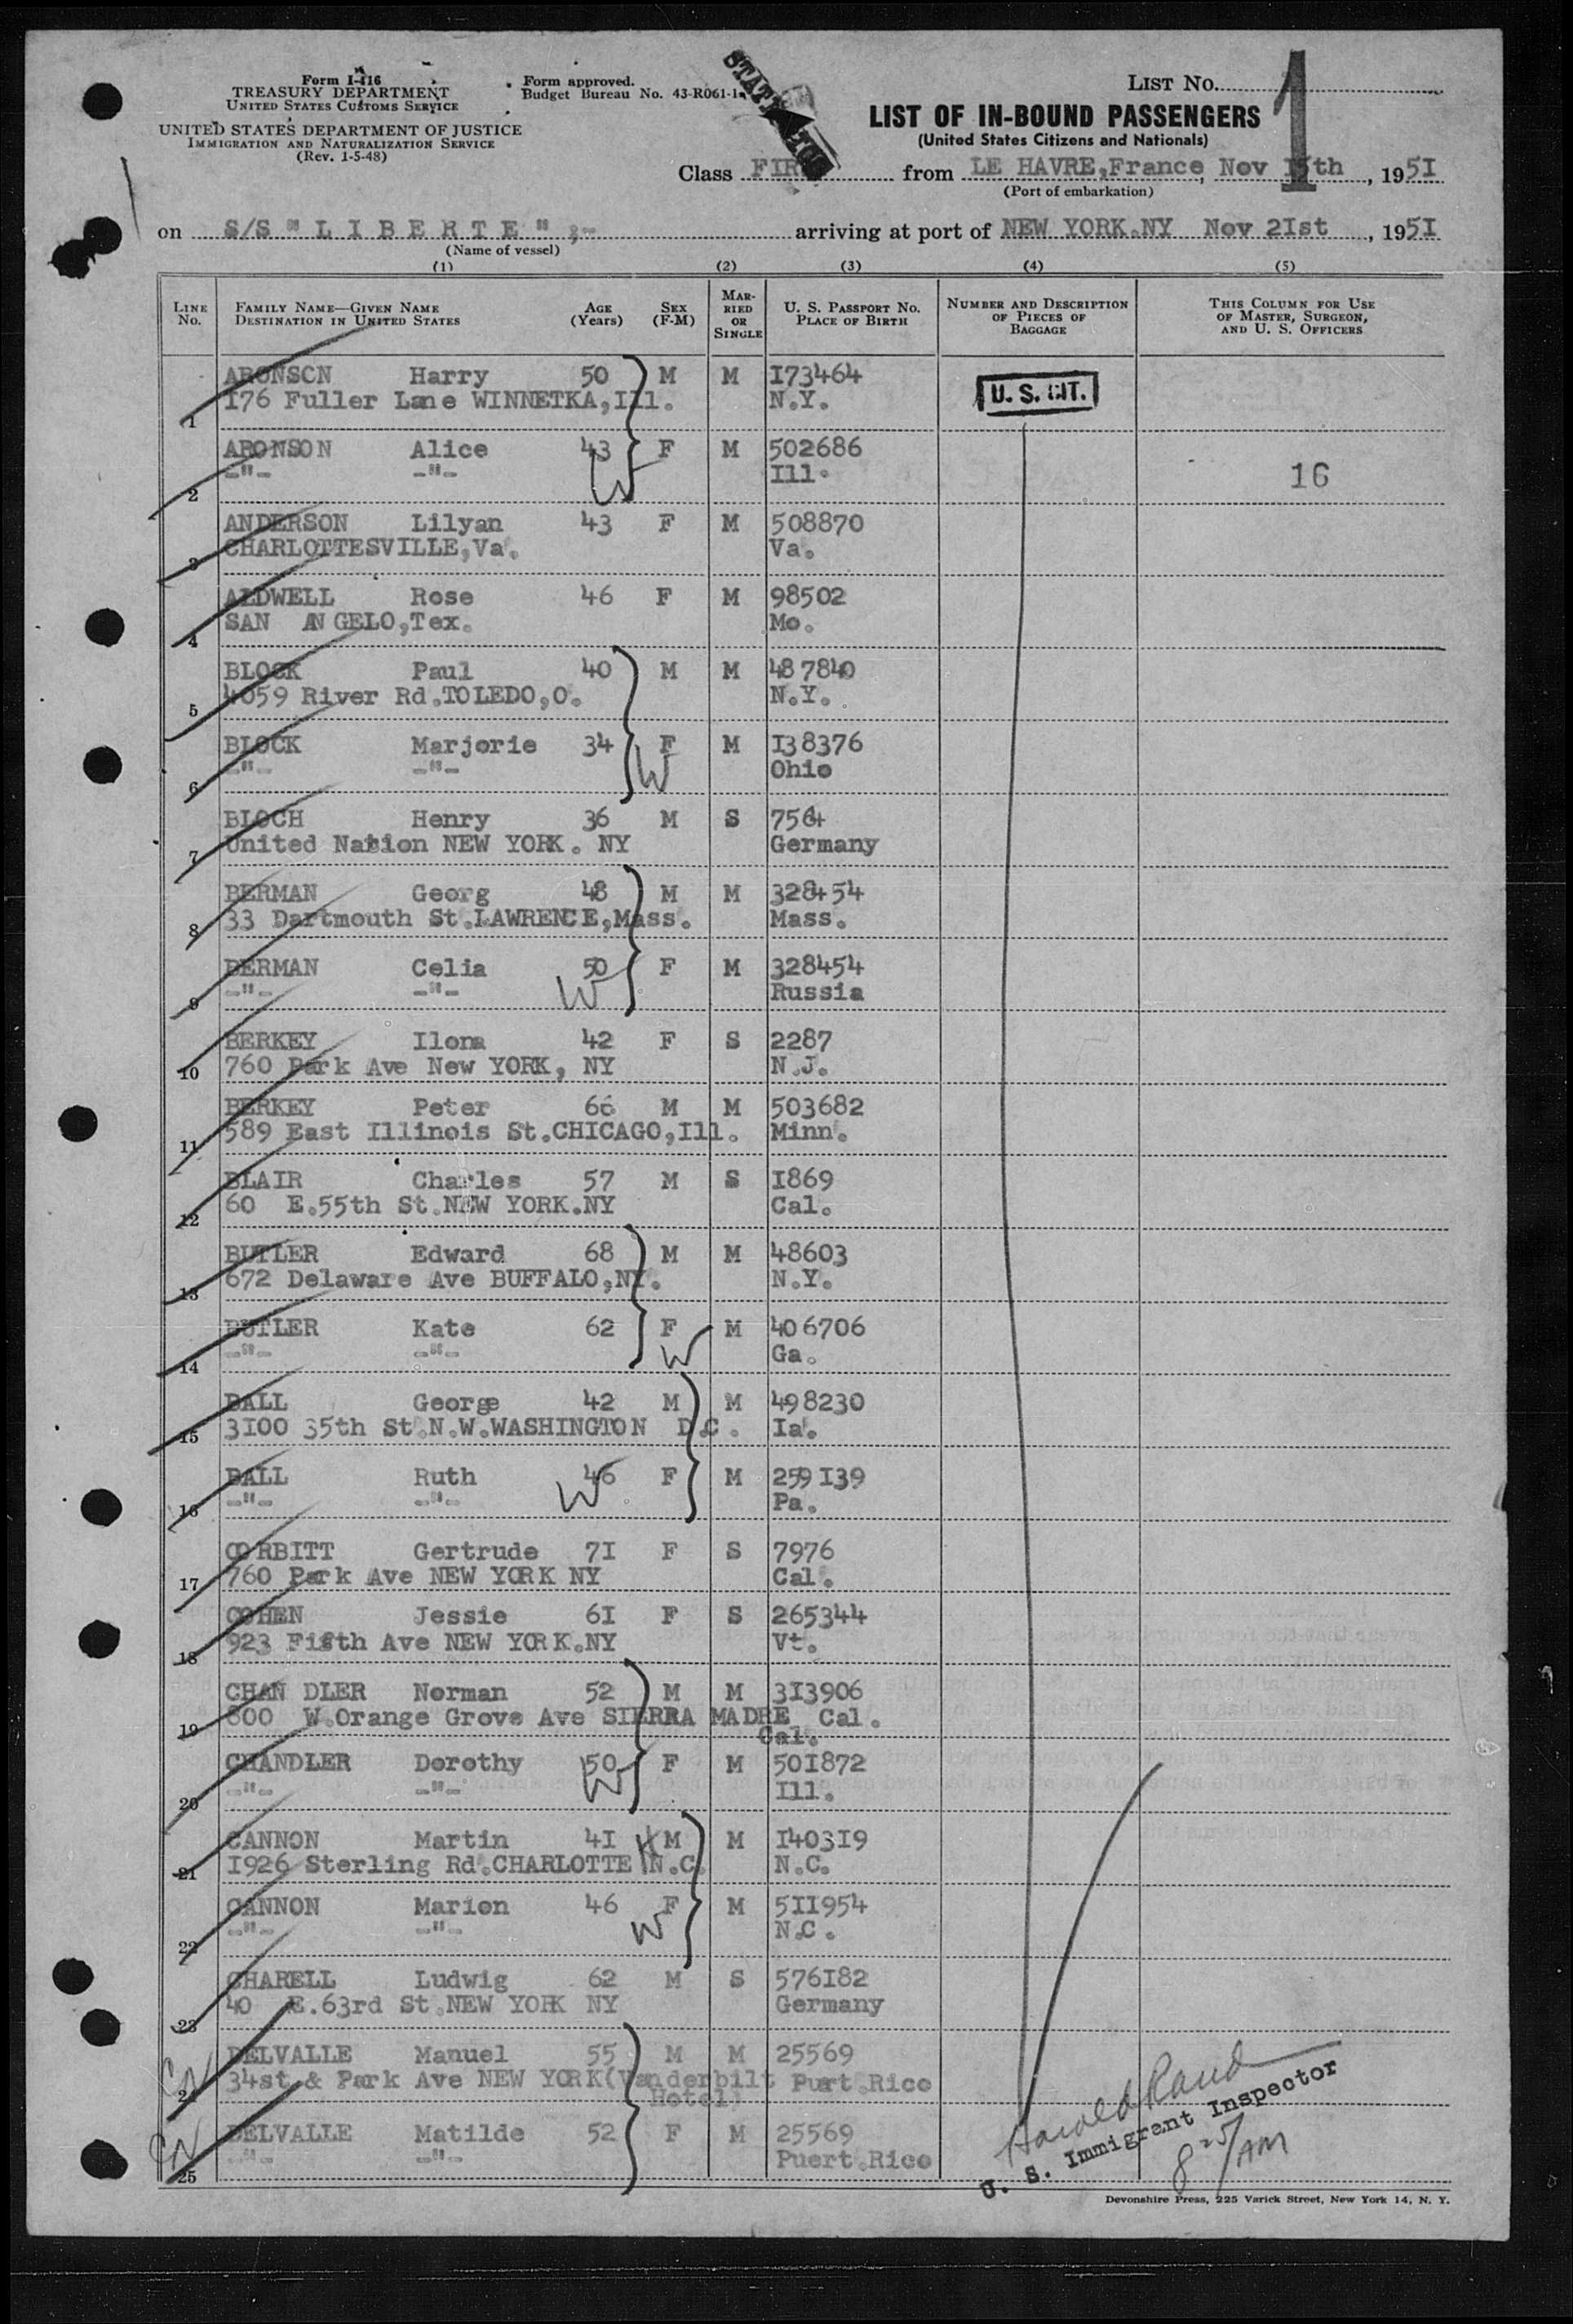 Form I-416
TREASURY DEPARTMENT
UNITED STATES CUSTOMS SERVICE
UNITED STATES DEPARTMENT OF JUSTICE
IMMIGRATION AND NATURALIZATION SERVICE
(Rev. 1-5-48)
Form approved.
Budget Bureau No. 43-R061-1.
LIST NO. 1
LIST OF IN-BOUND PASSENGERS
(United States Citizens and Nationals)
Class FIR from LE HAVRE,France, Nov 15th, 1951
(Port of embarkation)
on S/S " L I B E R T E " ;- arriving at port of NEW YORK.NY Nov 21st, 1951
(Name of vessel)
(1) (2) (3) (4) (5)
LINE No. FAMILY NAME—GIVEN NAME DESTINATION IN UNITED STATES AGE (Years) SEX (F-M) MARRIED OR SINGLE U. S. PASSPORT NO. PLACE OF BIRTH NUMBER AND DESCRIPTION OF PIECES OF BAGGAGE THIS COLUMN FOR USE OF MASTER, SURGEON, AND U. S. OFFICERS
ARONSON Harry 50 M M I73464 U. S. CIT.
1 I76 Fuller Lane WINNETKA,Ill. N.Y.
ARONSON Alice 43 F M 502686
2 -"- -"- W Ill. 16
ANDERSON Lilyan 43 F M 508870
3 CHARLOTTESVILLE,Va. Va.
ALDWELL Rose 46 F M 98502
4 SAN ANGELO,Tex. Mo.
BLOCK Paul 40 M M 487840
5 4059 River Rd.TOLEDO,O. N.Y.
BLOCK Marjorie 34 F M I38376
6 -"- -"- W Ohio
BLOCH Henry 36 M S 7564
7 United Nation NEW YORK. NY Germany
BERMAN Georg 48 M M 328454
8 33 Dartmouth St.LAWRENCE,Mass. Mass.
BERMAN Celia 50 F M 328454
9 -"- -"- W Russia
BERKEY Ilona 42 F S 2287
10 760 Park Ave New YORK, NY N.J.
BERKEY Peter 66 M M 503682
11 589 East Illinois St.CHICAGO,Ill. Minn.
BLAIR Charles 57 M S I869
12 60 E.55th St.NEW YORK.NY Cal.
BUTLER Edward 68 M M 48603
13 672 Delaware Ave BUFFALO,NY. N.Y.
BUTLER Kate 62 F M 406706
14 -"- -"- W Ga.
BALL George 42 M M 498230
15 3I00 35th St.N.W.WASHINGTON D.C. Ia.
BALL Ruth 46 F M 259I39
16 -"- -"- W Pa.
CORBITT Gertrude 7I F S 7976
17 760 Park Ave NEW YORK NY Cal.
COHEN Jessie 6I F S 265344
18 923 Fifth Ave NEW YORK.NY Vt.
CHANDLER Norman 52 M M 3I3906
19 800 W.Orange Grove Ave SIERRA MADRE Cal.
Cal.
CHANDLER Dorothy 50 F M 50I872
20 -"- -"- W Ill.
CANNON Martin 4I H M M I403I9
21 I926 Sterling Rd.CHARLOTTE N.C. N.C.
CANNON Marion 46 F M 5II954
22 -"- -"- W N.C.
CHARELL Ludwig 62 M S 576I82
23 40 E.63rd St.NEW YORK NY Germany
DELVALLE Manuel 55 M M 25569
CN 24 34st.& Park Ave NEW YORK(Vanderbilt Puert.Rico
Hotel)
DELVALLE Matilde 52 F M 25569
CN 25 -"- -"- Puert.Rico
Harold Rand
U. S. Immigrant Inspector
8 25/AM
Devonshire Press, 225 Varick Street, New York 14, N. Y.